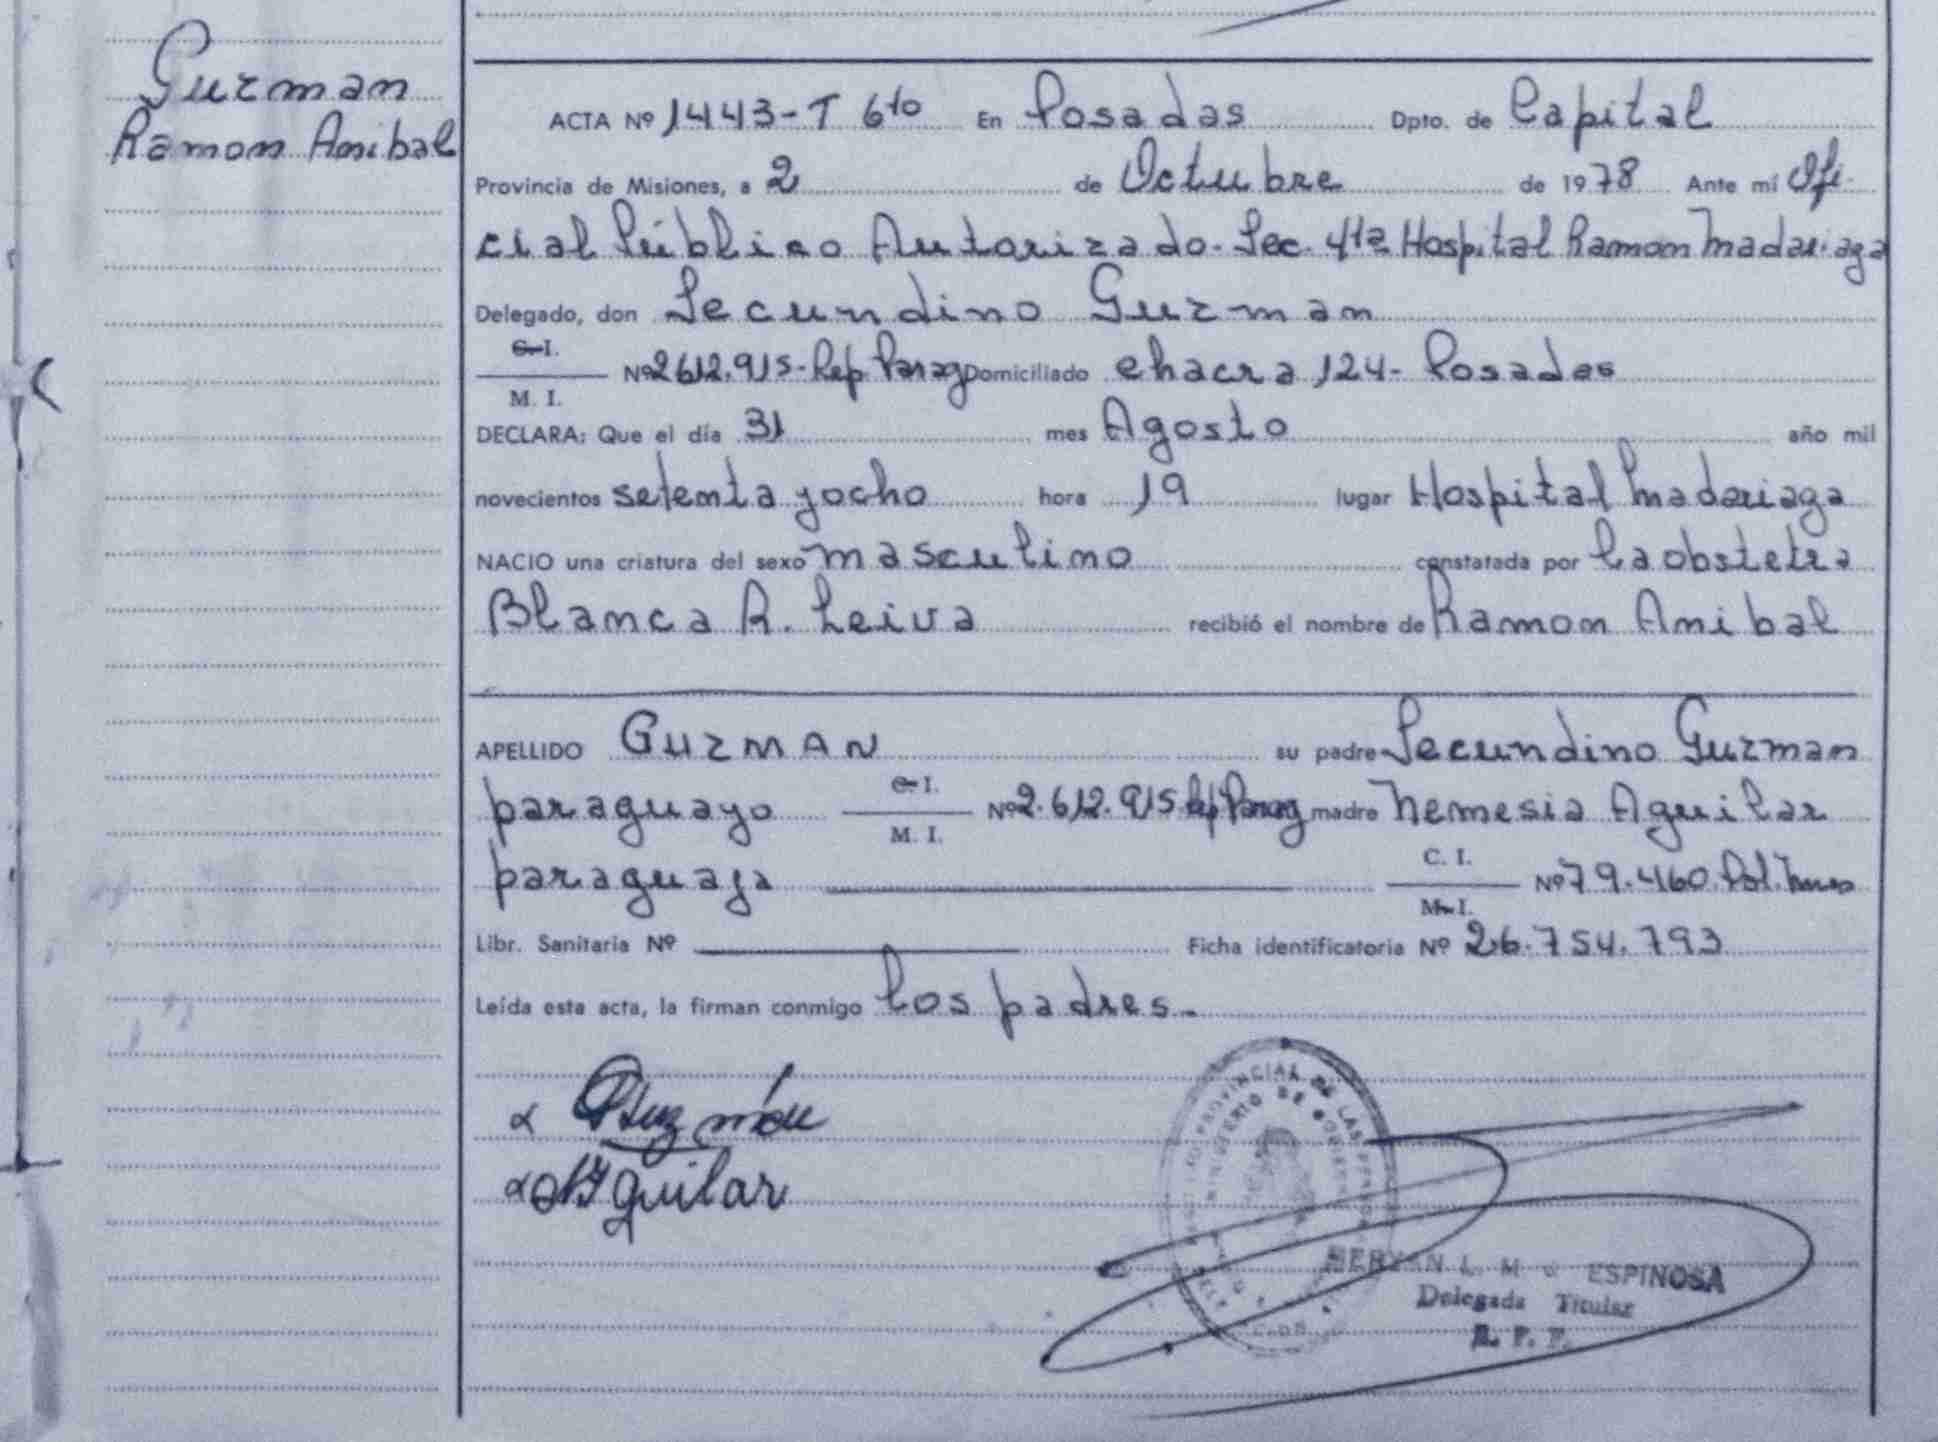 Guzman
Ramon Anibal
ACTA Nº 1443-T 6to En Posadas Dpto. de Capital
Provincia de Misiones, a 2 de Octubre de 1978 Ante mí Ofi-
cial Público Autorizado-Sec. 4ta Hospital Ramon Madariaga
Delegado, don Secundino Guzman
C. I.
M. I.
Nº 2.612.915-Rep Parag Domiciliado chacra 124- Posadas
DECLARA: Que el día 31 mes Agosto año mil
novecientos setenta y ocho hora 19 lugar Hospital Madariaga
NACIO una criatura del sexo masculino constatada por la obstetra
Blanca R. Leiva recibió el nombre de Ramon Anibal
APELLIDO GUZMAN su padre Secundino Guzman
paraguayo C. I. M. I. Nº 2.612.915 Rep Parag madre Nemesia Aguilar
paraguaya C. I. M. I. Nº 79.460 Pol.
Libr. Sanitaria Nº Ficha identificatoria Nº 26.754.793
Leída esta acta, la firman conmigo los padres.
Guzmán
Aguilar
PROVINCIAL DE LAS
MINISTERIO DE
L. M. ESPINOSA
Delegada Titular
R. P. P.